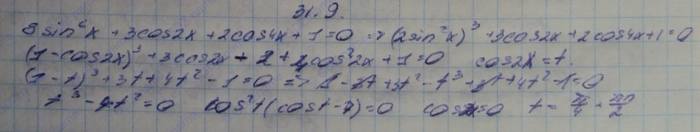 31.9.
8sin⁶x + 3cos2x + 2cos4x + 1 = 0 => (2sin²x)³ + 3cos2x + 2cos4x + 1 = 0
(1 - cos2x)³ + 3cos2x - 2 + 4cos²2x + 1 = 0 cos2x = t.
(1 - t)³ + 3t + 4t² - 1 = 0 => 1 - 3t + 3t² - t³ + 3t + 4t² - 1 = 0
t³ - 7t² = 0 cos²t(cost - 7) = 0 cos2x = 0 t = π/4 + πn/2